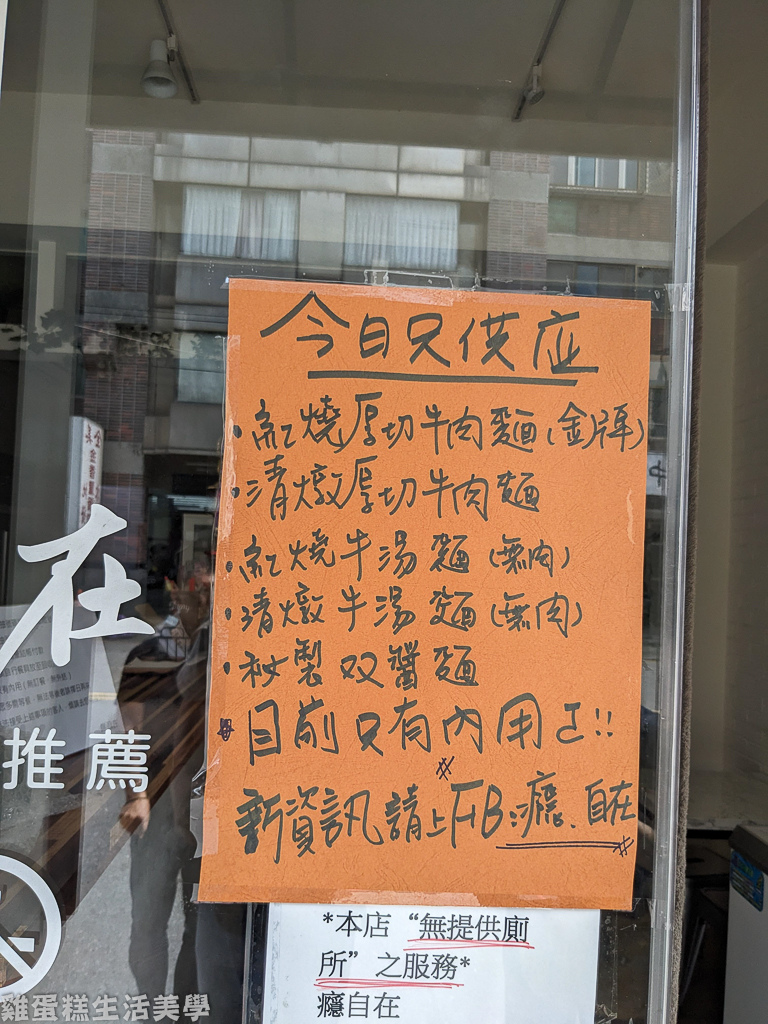 今日只供应
·紅燒厚切牛肉麵(金牌)
·清燉厚切牛肉麵
·紅燒牛湯麵(無肉)
·清燉牛湯麵(無肉)
·祕製双醬麵
目前只有內用!!
新資訊請上FB:癮、自在
*本店“無提供廁
所”之服務*
癮自在
在
推薦
雞蛋糕生活美學